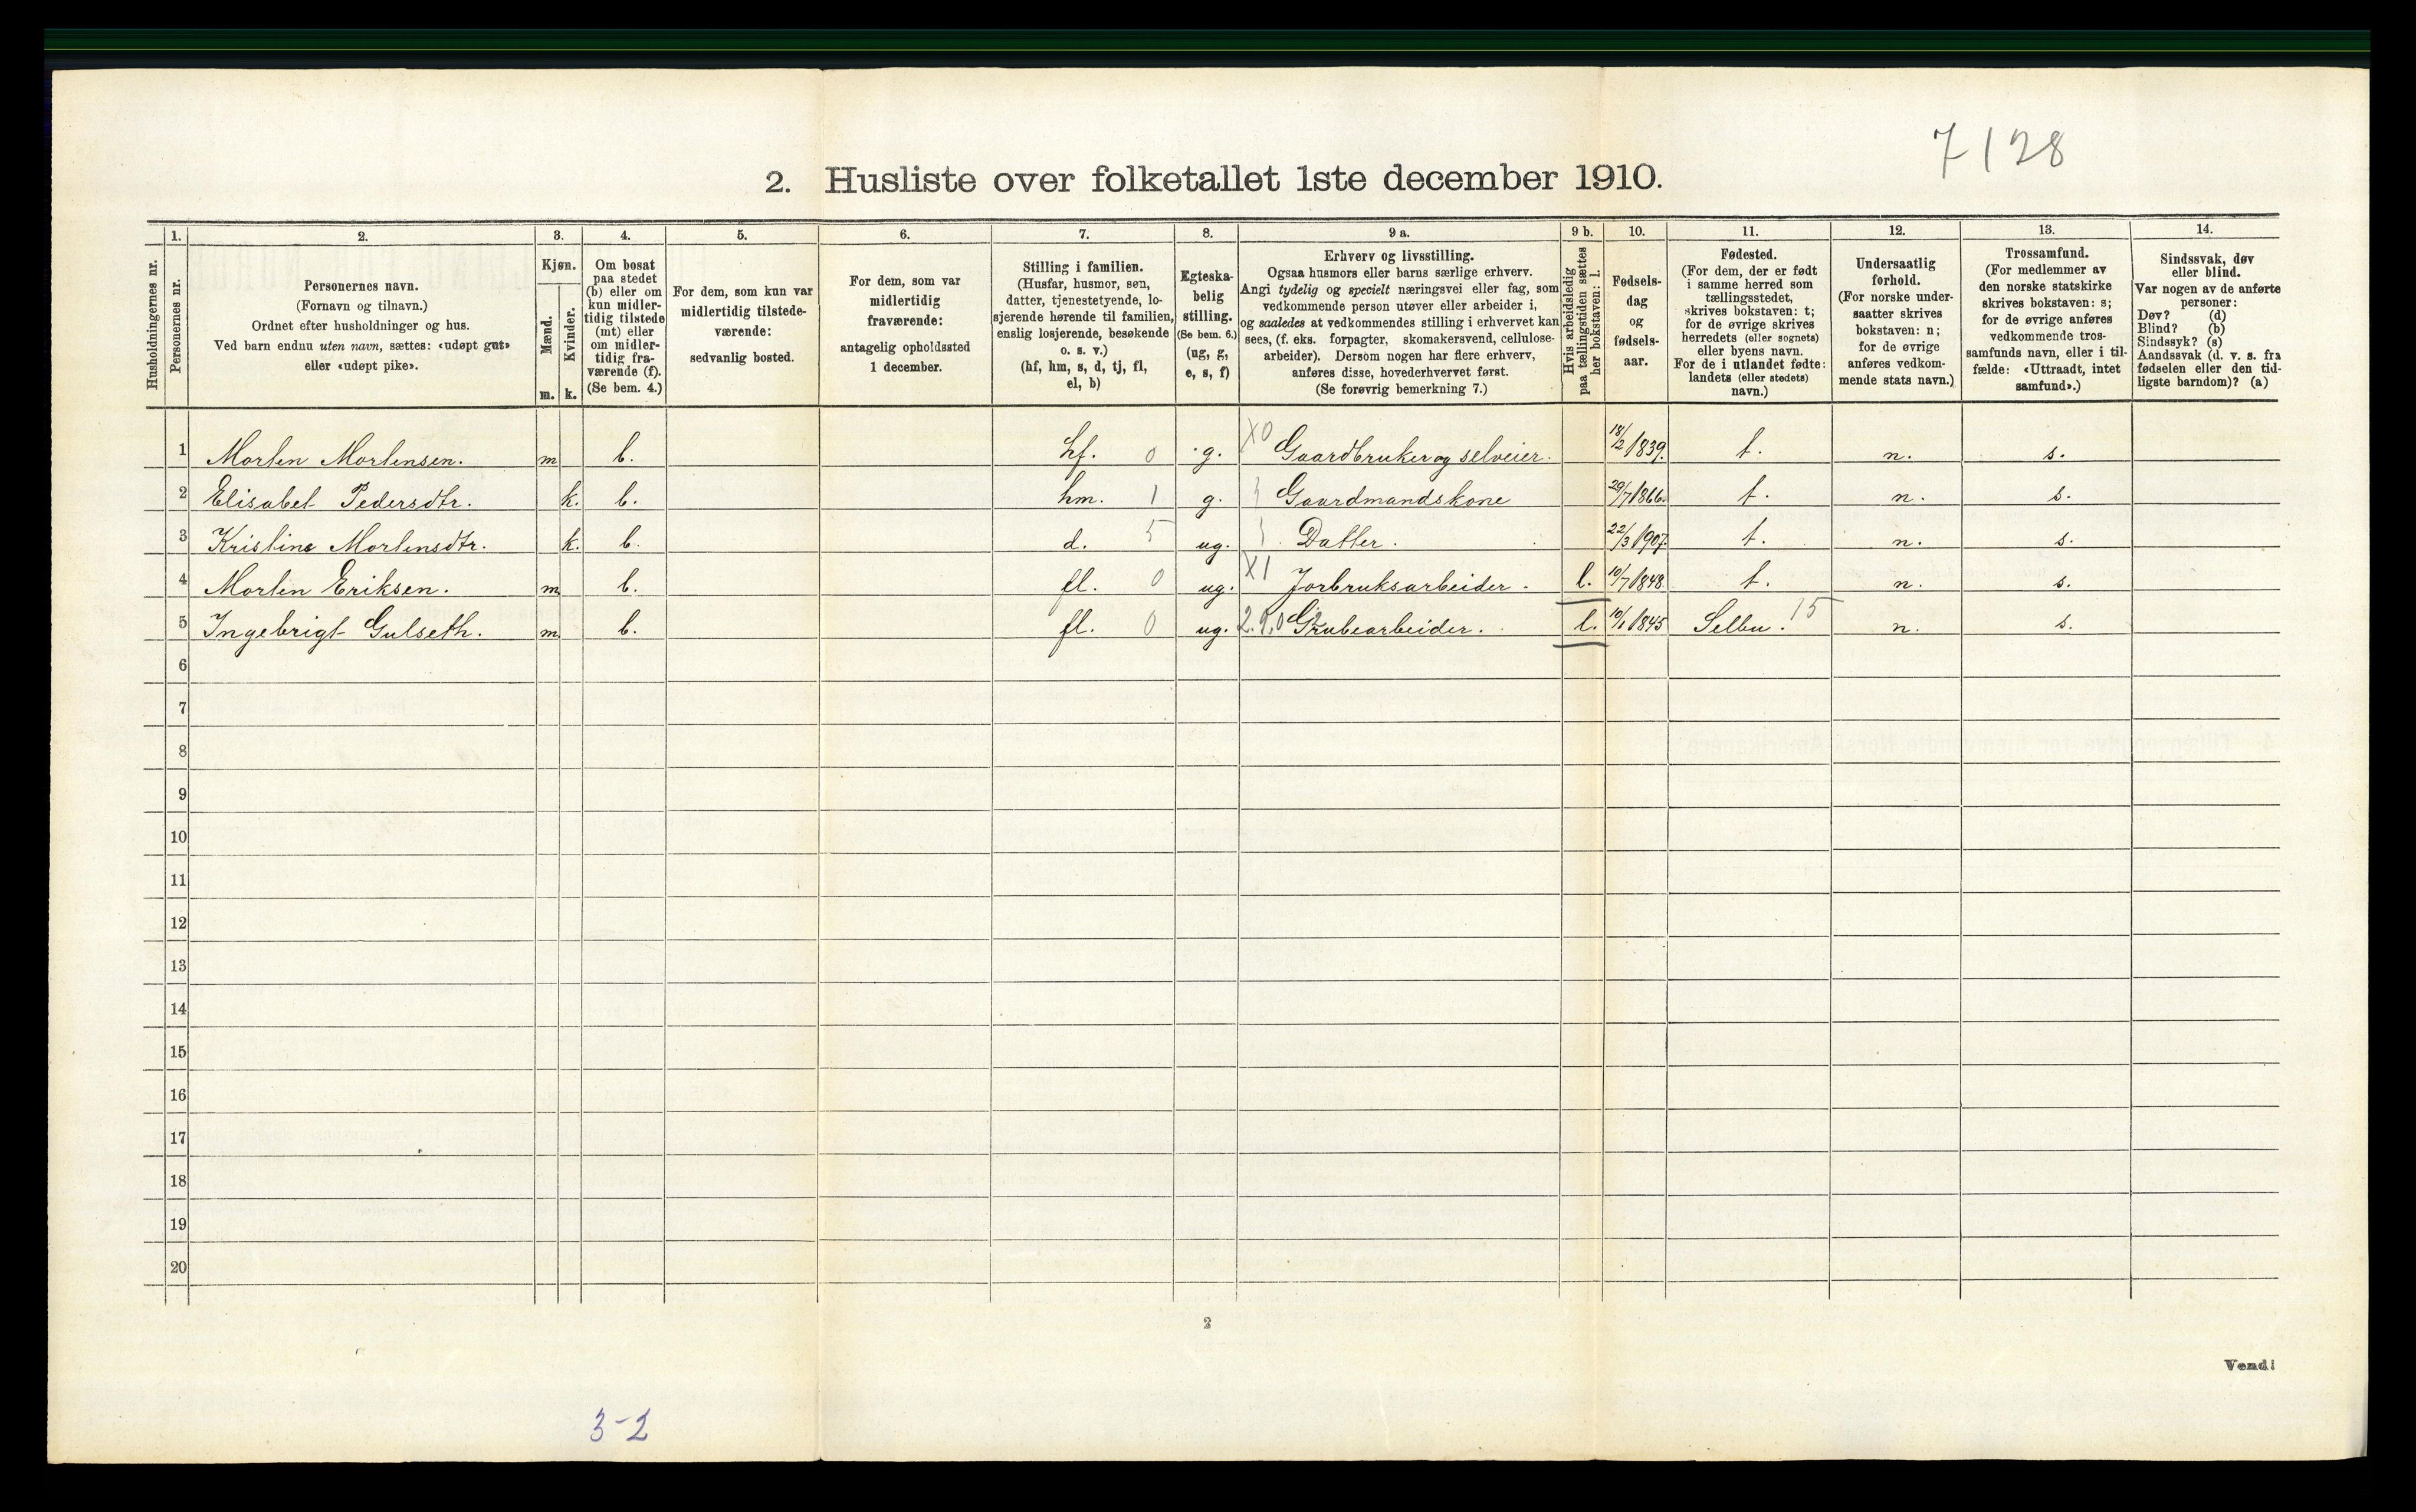 7128
2. Husliste over folketallet 1ste december 1910.
1. 2. 3. 4. 5. 6. 7. 8. 9 a. 9 b. 10. 11. 12. 13. 14.
Husholdningernes nr.
Personernes nr.
Personernes navn.
(Fornavn og tilnavn.)
Ordnet efter husholdninger og hus.
Ved barn endnu uten navn, sættes: «udøpt gut»
eller «udøpt pike».
Kjøn.
Mænd.
Kvinder.
m. k.
Om bosat
paa stedet
(b) eller om
kun midler-
tidig tilstede
(mt) eller
om midler-
tidig fra-
værende (f).
(Se bem. 4.)
For dem, som kun var
midlertidig tilstede-
værende:
sedvanlig bosted.
For dem, som var
midlertidig
fraværende:
antagelig opholdssted
1 december.
Stilling i familien.
(Husfar, husmor, søn,
datter, tjenestetyende, lo-
sjerende hørende til familien,
enslig losjerende, besøkende
o. s. v.)
(hf, hm, s, d, tj, fl,
el, b)
Egteska-
belig
stilling.
(Se bem. 6.)
(ug, g,
e, s, f)
Erhverv og livsstilling.
Ogsaa husmors eller barns særlige erhverv.
Angi tydelig og specielt næringsvei eller fag, som
vedkommende person utøver eller arbeider i,
og saaledes at vedkommendes stilling i erhvervet kan
sees, (f. eks. forpagter, skomakersvend, cellulose-
arbeider). Dersom nogen har flere erhverv,
anføres disse, hovederhvervet først.
(Se forøvrig bemerkning 7.)
Hvis arbeidsledig
paa tællingstiden sættes
her bokstaven: l.
Fødsels-
dag
og
fødsels-
aar.
Fødested.
(For dem, der er født
i samme herred som
tællingsstedet,
skrives bokstaven: t;
for de øvrige skrives
herredets (eller sognets)
eller byens navn.
For de i utlandet fødte:
landets (eller stedets)
navn.)
Undersaatlig
forhold.
(For norske under-
saatter skrives
bokstaven: n;
for de øvrige
anføres vedkom-
mende stats navn.)
Trossamfund.
(For medlemmer av
den norske statskirke
skrives bokstaven: s;
for de øvrige anføres
vedkommende tros-
samfunds navn, eller i til-
fælde: «Uttraadt, intet
samfund».)
Sindssvak, døv
eller blind.
Var nogen av de anførte
personer:
Døv? (d)
Blind? (b)
Sindssyk? (s)
Aandssvak (d. v. s. fra
fødselen eller den tid-
ligste barndom)? (a)
1 Morten Mortensen. m b. hf. 0 g. X0 Gaardbruker og selveier. 18/2 1839. t. n. s.
2 Elisabet Pedersdtr. k. b. hm. 1 g. Gaardmandskone 29/7 1866. t. n. s.
3 Kristine Mortensdtr. k. b. d. 5 ug. Datter. 22/3 1907. t. n. s.
4 Morten Eriksen. m b. fl. 0 ug. X1 Jorbruksarbeider - l. 10/7 1848 t. n. s.
5 Ingebrigt Gulseth. m b. fl. 0 ug. Grubearbeider. l. 10/1 1845 Selbu. 15 n. s.
6
7
8
9
10
11
12
13
14
15
16
17
18
19
20
2
Vend!
3-2